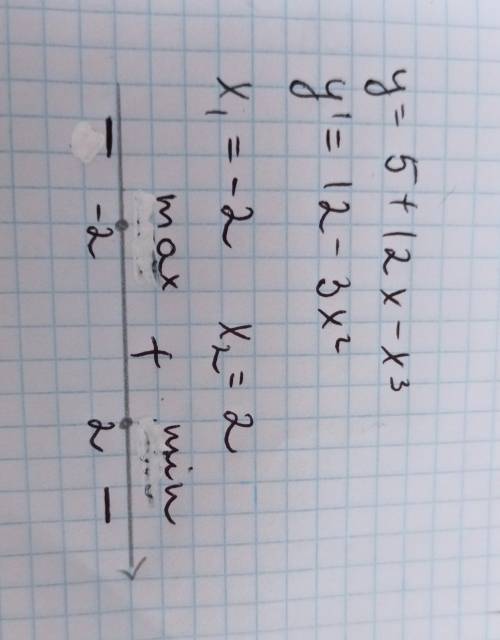 y = 5 + 12x - x³
y' = 12 - 3x²
x₁ = -2 x₂ = 2
max + min
- -2 2 -